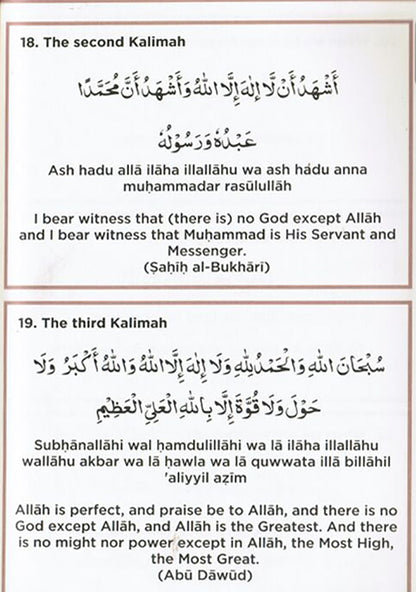 18. The second Kalimah
أَشْهَدُ أَنْ لَّا إِلٰهَ إِلَّا اللهُ وَأَشْهَدُ أَنَّ مُحَمَّدًا
عَبْدُهُ وَرَسُوْلُهُ
Ash hadu allā ilāha illallāhu wa ash hadu anna
muḥammadar rasūlullāh
I bear witness that (there is) no God except Allāh
and I bear witness that Muḥammad is His Servant and
Messenger.
(Ṣaḥīḥ al-Bukhārī)
19. The third Kalimah
سُبْحَانَ اللهِ وَالْحَمْدُ لِلّٰهِ وَلَا إِلٰهَ إِلَّا اللهُ وَاللهُ أَكْبَرُ وَلَا
حَوْلَ وَلَا قُوَّةَ إِلَّا بِاللهِ الْعَلِيِّ الْعَظِيْمِ
Subḥānallāhi wal ḥamdulillāhi wa lā ilāha illallāhu
wallāhu akbar wa lā ḥawla wa lā quwwata illā billāhil
'aliyyil aẓīm
Allāh is perfect, and praise be to Allāh, and there is no
God except Allāh, and Allāh is the Greatest. And there
is no might nor power except in Allāh, the Most High,
the Most Great.
(Abū Dāwūd)